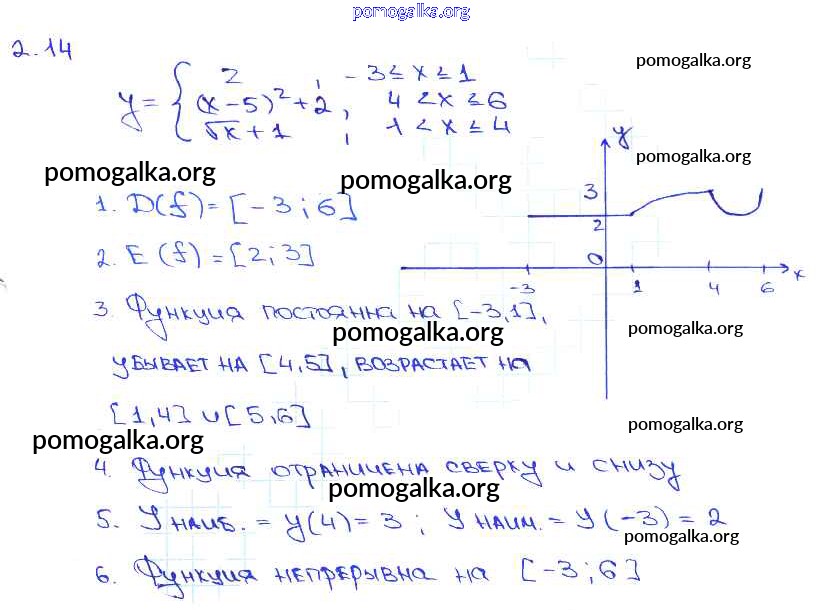 pomogalka.org
2.14
pomogalka.org
y = { 2 , -3 ≤ x ≤ 1
(x-5)² + 2 , 4 < x ≤ 6
√x + 1 , 1 < x ≤ 4
y
pomogalka.org
pomogalka.org
pomogalka.org
1. D(f) = [-3; 6]
3
2
0
-3 1 4 6 x
2. E (f) = [2; 3]
3. Функция постоянна на [-3,1],
pomogalka.org
pomogalka.org
убывает на [4,5], возрастает на
[1,4] ∪ [5,6]
pomogalka.org
pomogalka.org
4. Функция ограничена сверху и снизу
pomogalka.org
5. y наиб. = y(4) = 3 ; y наим. = y(-3) = 2
pomogalka.org
6. Функция непрерывна на [-3; 6]